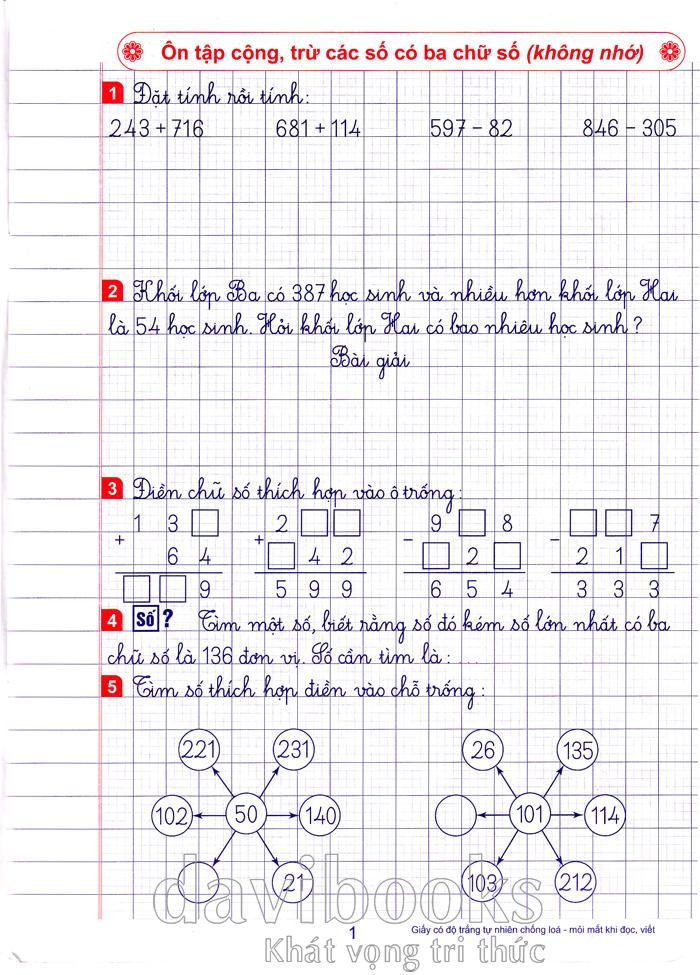 Ôn tập cộng, trừ các số có ba chữ số (không nhớ)
1 Đặt tính rồi tính:
243 + 716 681 + 114 597 - 82 846 - 305
2 Khối lớp Ba có 387 học sinh và nhiều hơn khối lớp Hai
là 54 học sinh. Hỏi khối lớp Hai có bao nhiêu học sinh?
Bài giải
3 Điền chữ số thích hợp vào ô trống:
1 3 □ 2 □ □ 9 □ 8 □ □ 7
+ + - -
6 4 □ 4 2 □ 2 □ 2 1 □
□ □ 9 5 9 9 6 5 4 3 3 3
4 Số ? Tìm một số, biết rằng số đó kém số lớn nhất có ba
chữ số là 136 đơn vị. Số cần tìm là: ...
5 Tìm số thích hợp điền vào chỗ trống:
221 231 26 135
102 50 140 101 114
21 103 212
davibooks
1 Giấy có độ trắng tự nhiên chống loá - mỏi mắt khi đọc, viết
Khát vọng tri thức